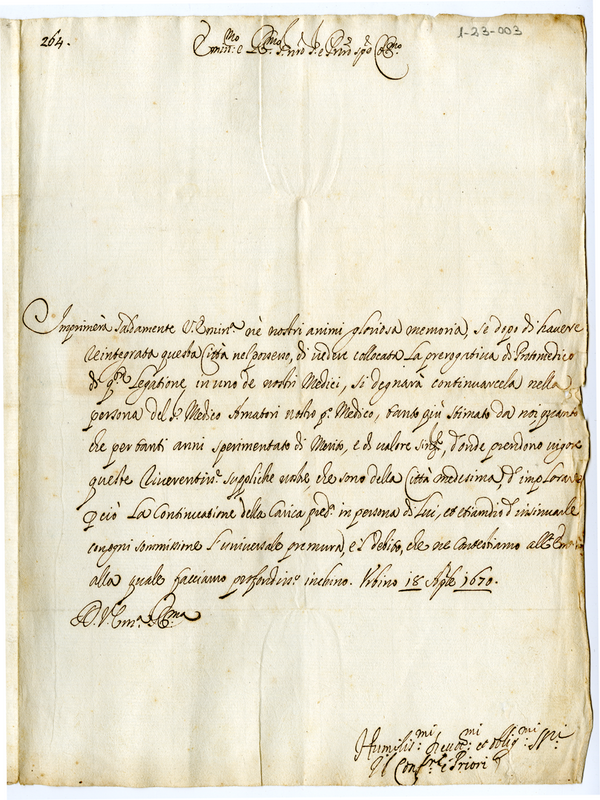 264.
1-23-003
Emin: e R.mo Sig.re Sig.re e Pron Col.mo
Imprimerà saldamente V. Emin.a nè nostri animi gloriosa memoria, se dopo di havere
reintegrata questa Città nel possesso, di vedere collocata La prerogativa di Protomedico
di q.ta Legatione in uno de nostri Medici, si degnarà continuarcela nella
persona del S.r Medico Amatori nostro p.o Medico, tanto più stimato da noi quanto
che per tanti anni sperimentato di Merito, e di valore sing.re, d'onde prendono vigore
queste riverentiss.e suppliche nostre, che sono della Città medesima, d'implorare
p ciò La Continuatione della Carica pred.a in persona di Lui, et etiandio d'insinuarle
con ogni sommissione l'universale premura, e'l debito, che ne Contestiamo all' Em.a
alla quale facciamo profondiss.o inchino. Urbino 18 Aple 1670.
D. V. Em.a R.ma
Humiliss.mi devot.mi et oblig.mi S.ri
Il Conf.re e Priori